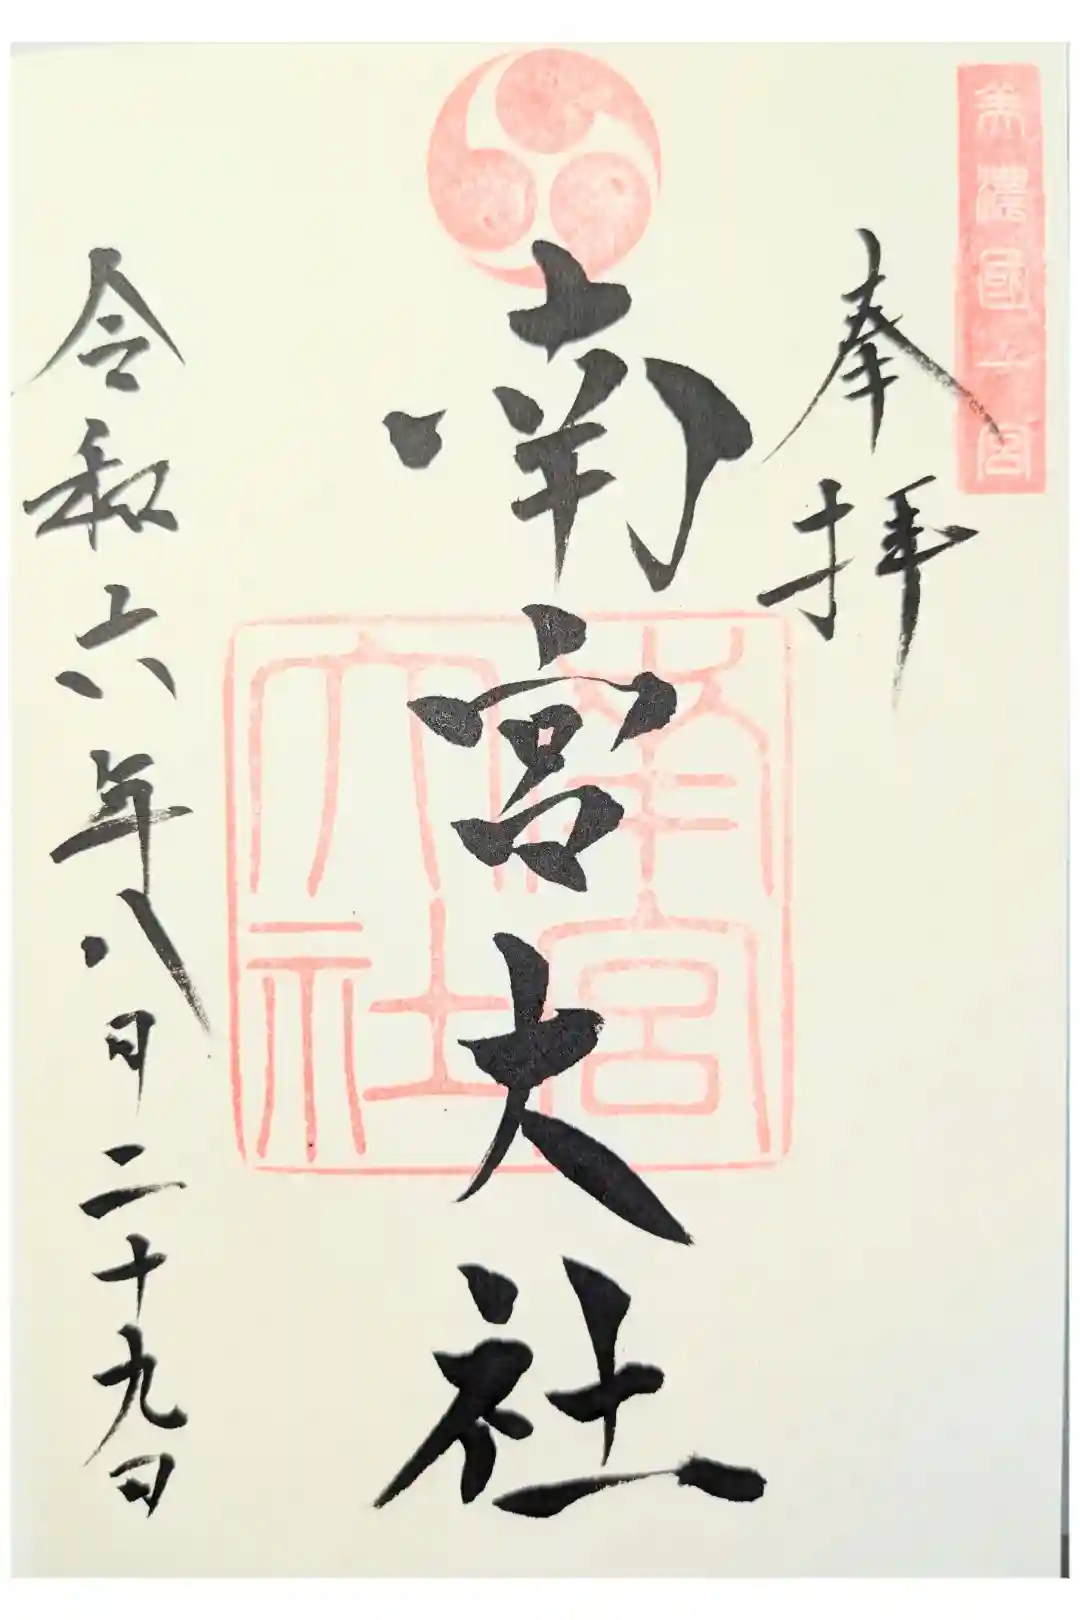 美濃國一宮
奉拝
南宮大社
南宮
大社
令和六年八月二十九日